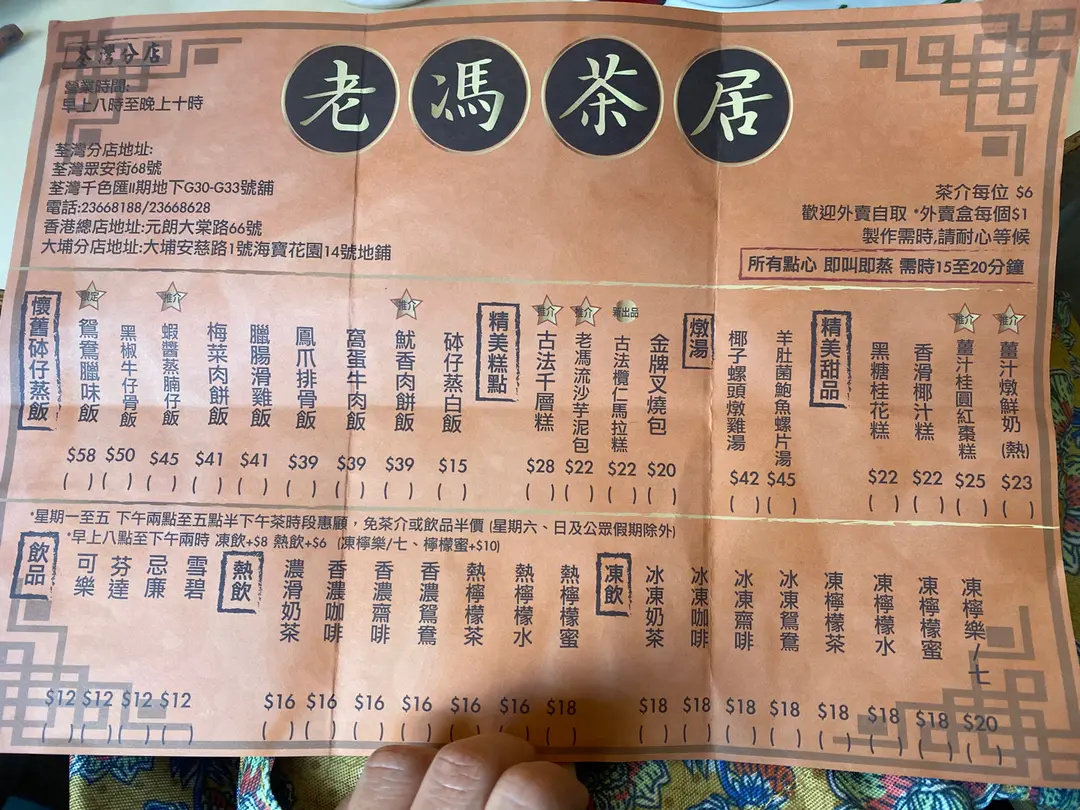 荃灣分店
老馮茶居
營業時間:
早上八時至晚上十時
荃灣分店地址:
荃灣眾安街68號
荃灣千色匯II期地下G30-G33號舖
電話:23668188/23668628
香港總店地址:元朗大棠路66號
大埔分店地址:大埔安慈路1號海寶花園14號地鋪
茶介每位 $6
歡迎外賣自取 *外賣盒每個$1
製作需時,請耐心等候
所有點心 即叫即蒸 需時15至20分鐘
懷舊砵仔蒸飯
鴛鴦臘味飯 $58 ( )
黑椒牛仔骨飯 $50 ( )
推介 蝦醬蒸腩仔飯 $45 ( )
梅菜肉餅飯 $41 ( )
臘腸滑雞飯 $41 ( )
鳳爪排骨飯 $39 ( )
窩蛋牛肉飯 $39 ( )
推介 魷香肉餅飯 $39 ( )
砵仔蒸白飯 $15 ( )
精美糕點
推介 古法千層糕 $28 ( )
推介 老馮流沙芋泥包 $22 ( )
新出品 古法欖仁馬拉糕 $22 ( )
金牌叉燒包 $20 ( )
燉湯
椰子螺頭燉雞湯 $42 ( )
羊肚菌鮑魚螺片湯 $45 ( )
精美甜品
黑糖桂花糕 $22 ( )
香滑椰汁糕 $22 ( )
推介 薑汁桂圓紅棗糕 $25 ( )
推介 薑汁燉鮮奶(熱) $23 ( )
*星期一至五 下午兩點至五點半下午茶時段惠顧，免茶介或飲品半價 (星期六、日及公眾假期除外)
*早上八點至下午兩時 凍飲+$8 熱飲+$6 (凍檸樂/七、檸檬蜜+$10)
飲品
可樂 $12 ( )
芬達 $12 ( )
忌廉 $12 ( )
雪碧 $12 ( )
熱飲
濃滑奶茶 $16 ( )
香濃咖啡 $16 ( )
香濃齋啡 $16 ( )
香濃鴛鴦 $16 ( )
熱檸檬茶 $16 ( )
熱檸檬水 $16 ( )
熱檸檬蜜 $18 ( )
凍飲
冰凍奶茶 $18 ( )
冰凍咖啡 $18 ( )
冰凍齋啡 $18 ( )
冰凍鴛鴦 $18 ( )
凍檸檬茶 $18 ( )
凍檸檬水 $18 ( )
凍檸檬蜜 $18 ( )
凍檸樂/七 $20 ( )